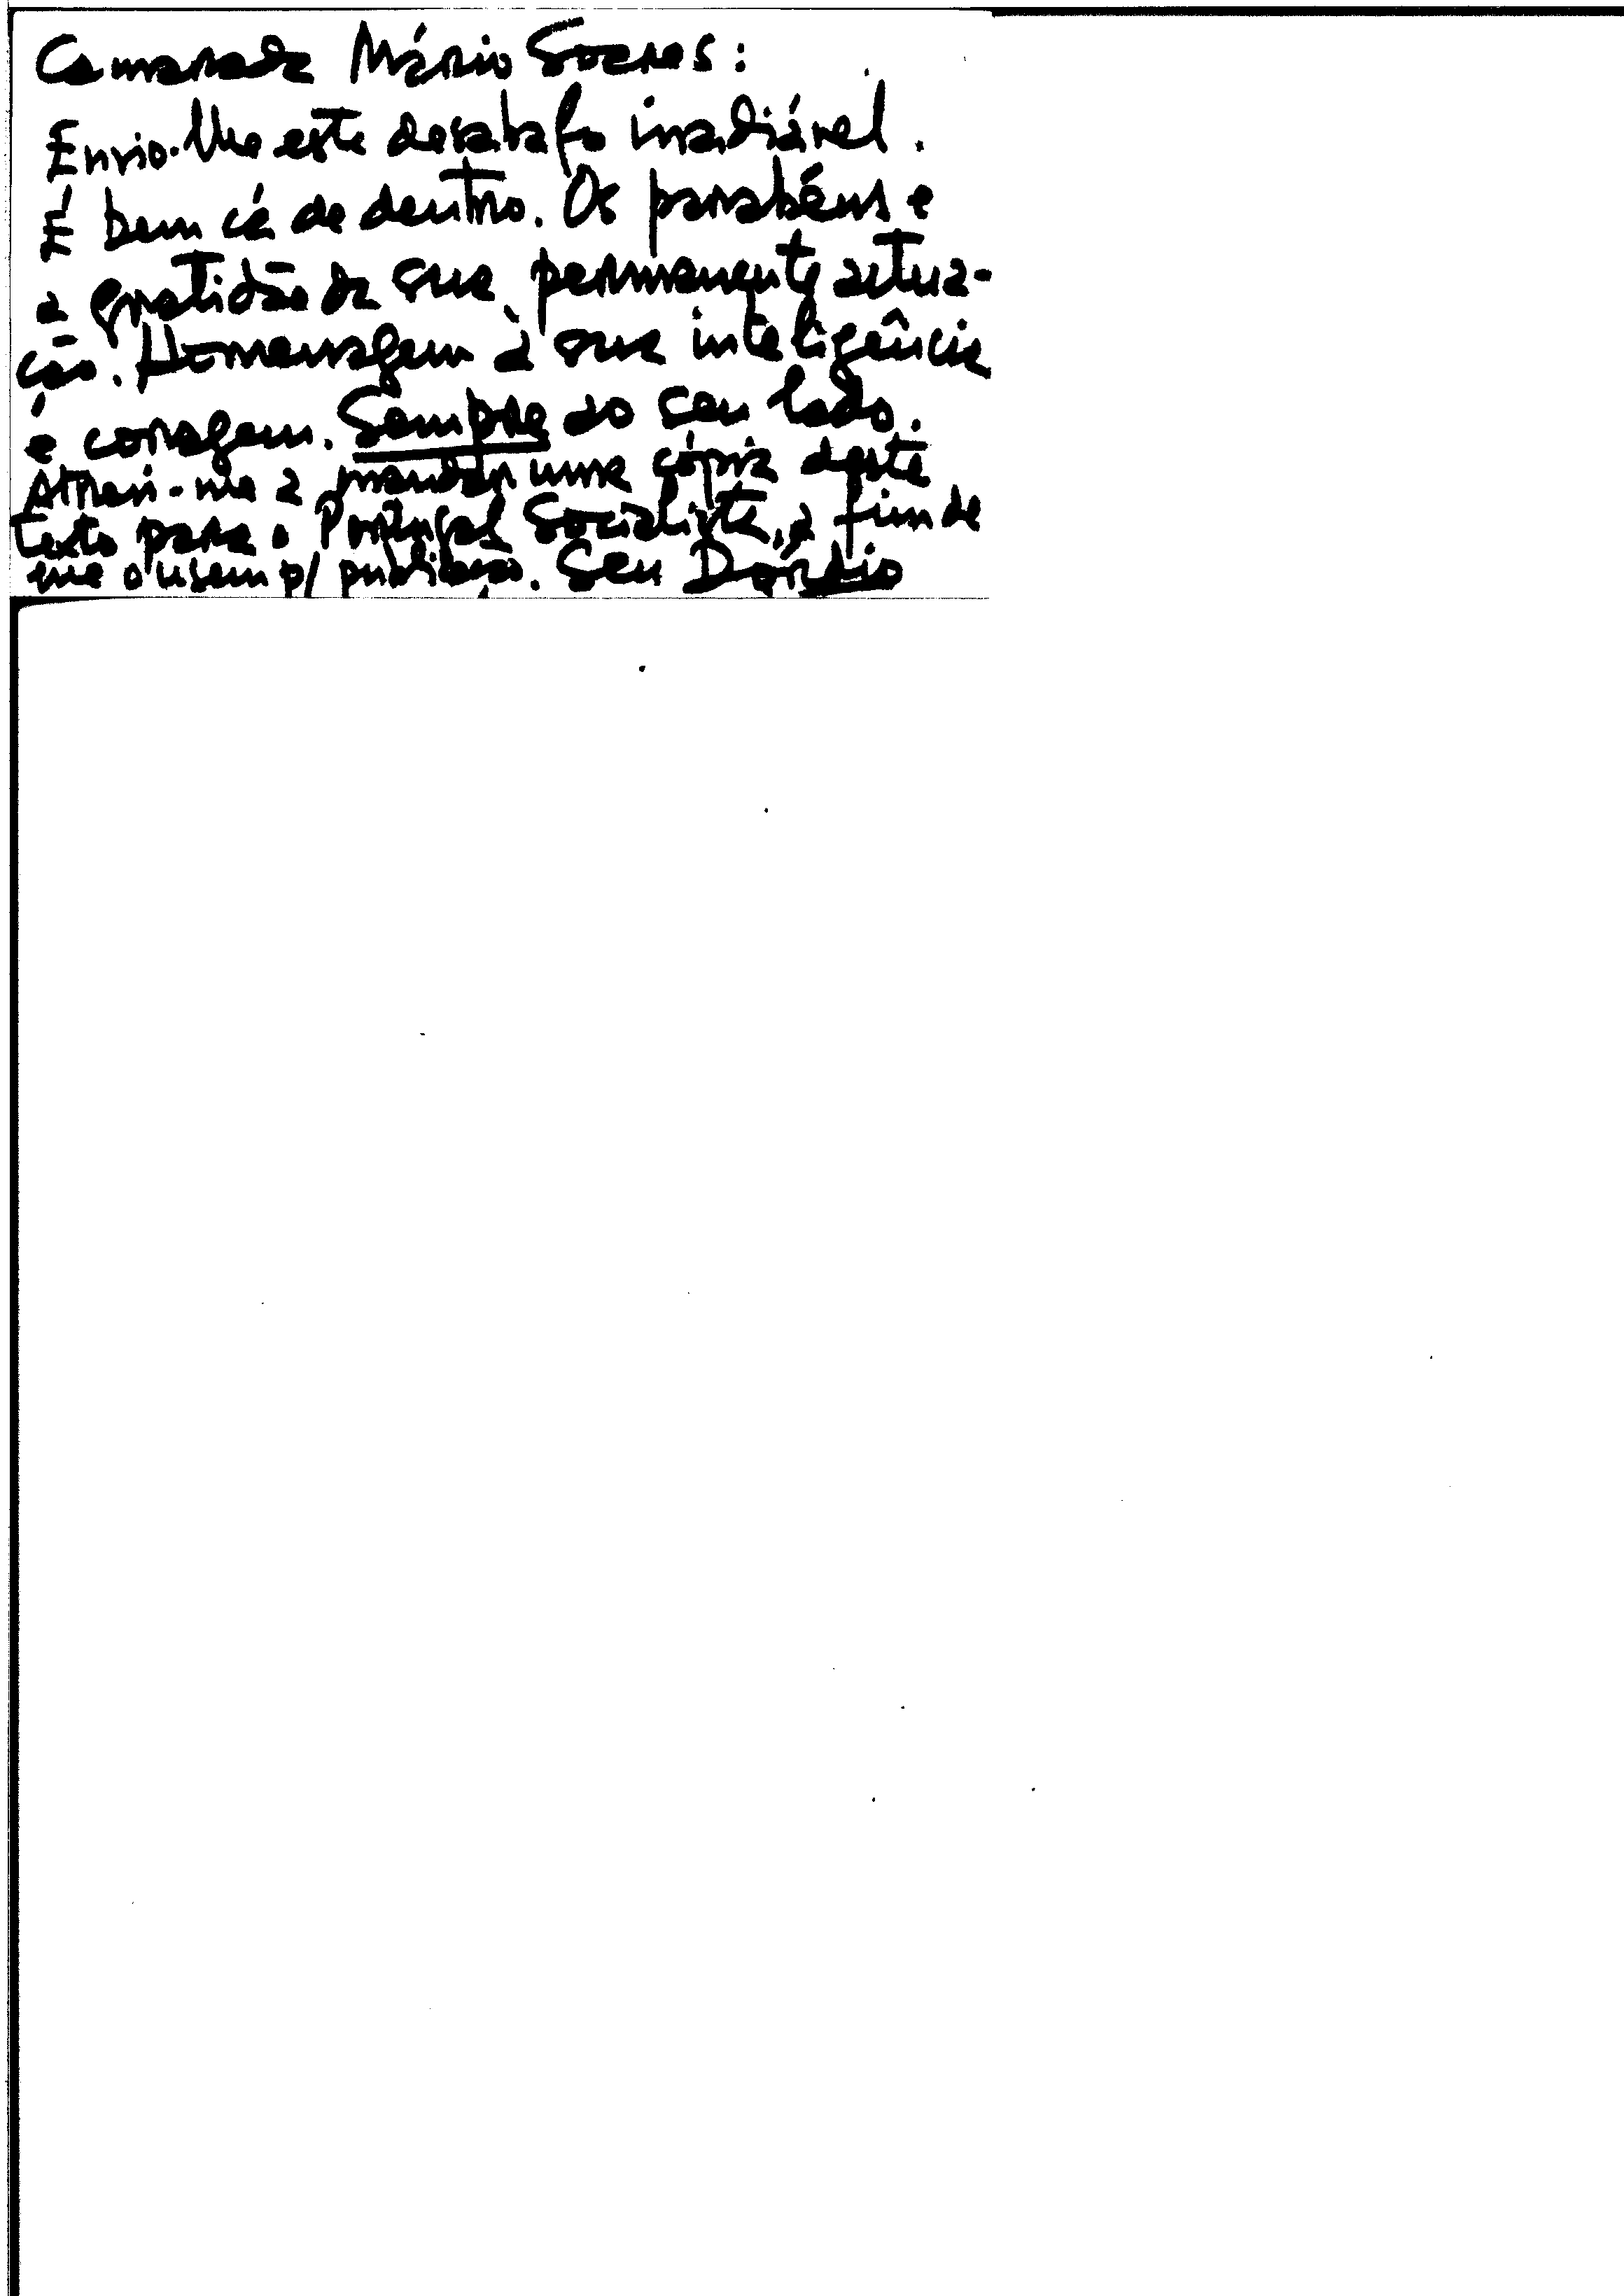 Camarada Mário Soares:
Envio-lhe este desabafo inadiável.
É bem cá de dentro. Os parabéns e
a gratidão da sua permanente actua-
ção. Homenagem à sua inteligência
e coragem. Sempre ao seu lado.
Atrevi-me a mandar uma cópia deste
texto para o Portugal Socialista, a fim de
que o usem p/ publicação. Seu Dórdio